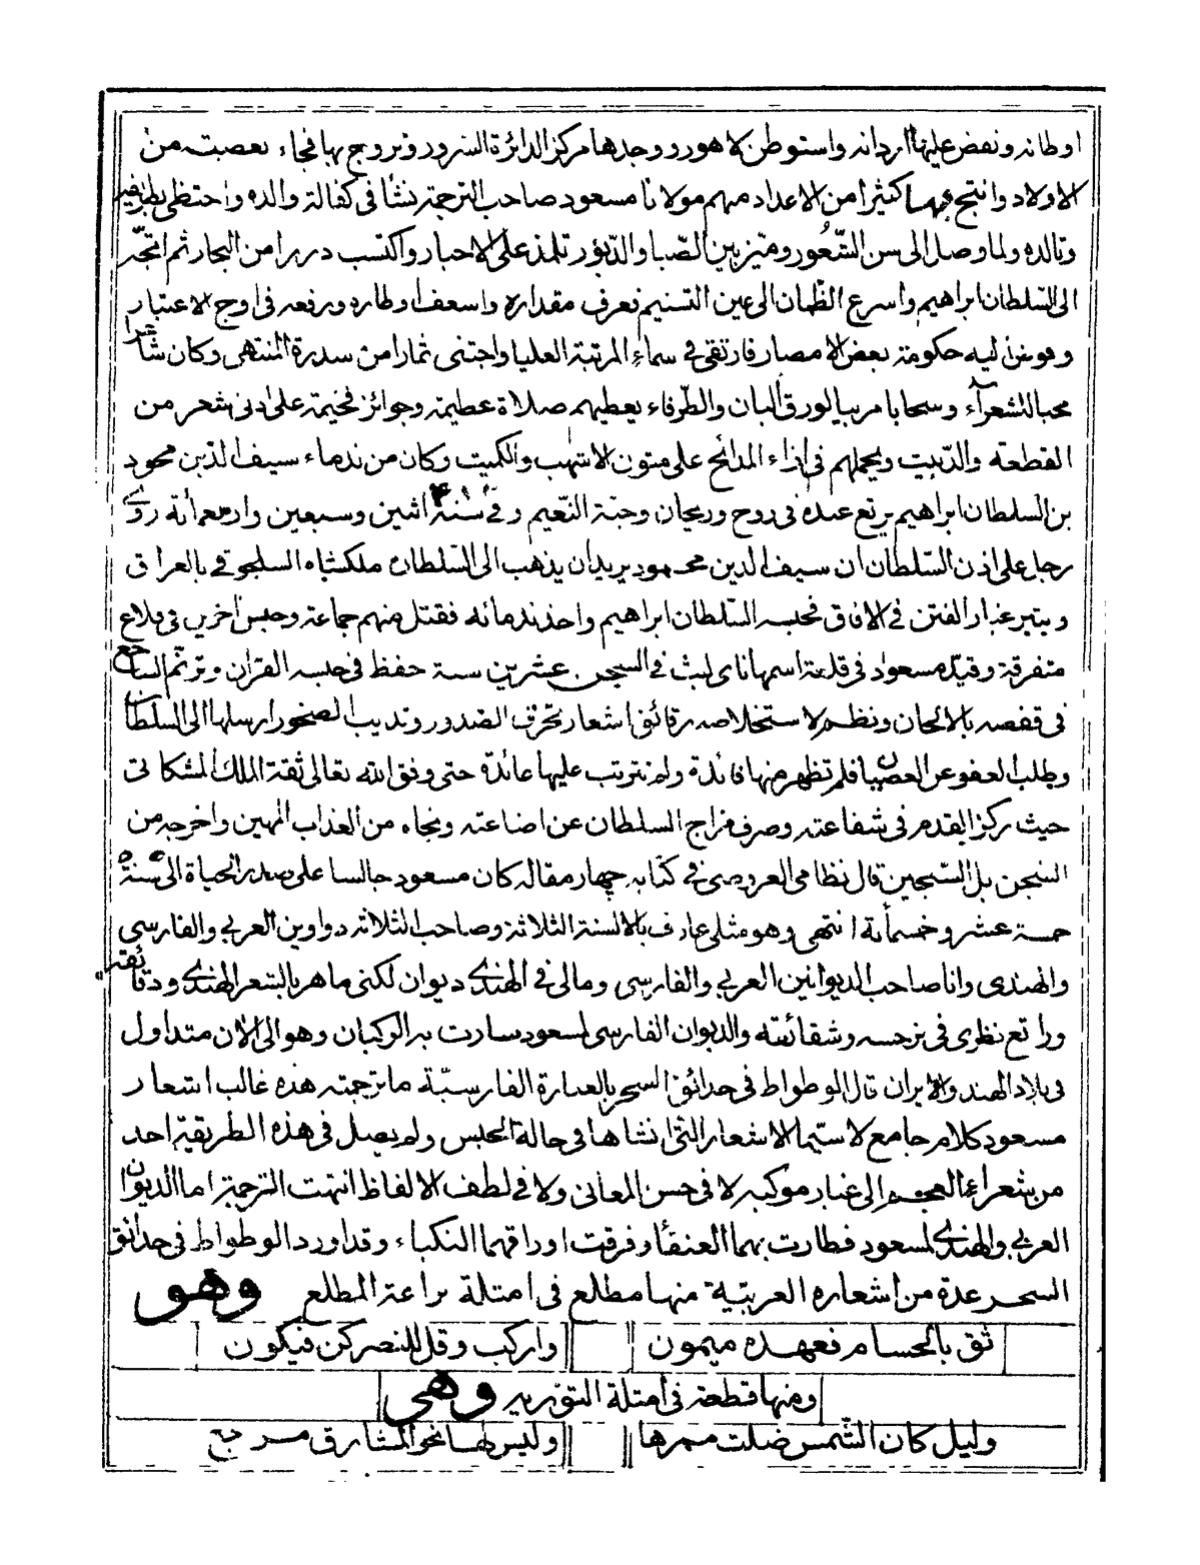 اوطانه ونفض عليها اردانه واستوطن لاهور ووجدها مركز الدائرة السرور وتزوج بها فجاء بعصبة من
الاولاد وانتج فيها كثيرا من الاعداد منهم مولانا مسعود صاحب الترجمة نشأ فى كفالة والده واحتظى بطارفه
وتالده ولما وصل الى سن الشّعُور وميّز بين الصّبا والدّبور تلمذ على الاحبار واكتسب دررا من البحار ثم اتجّه
الى السّلطان ابراهيم واسرع الظمان الى عين التسنيم فعرف مقداره واسعف اوطاره ورفعه فى اوج الاعتبار
وفوض اليه حكومة بعض الامصار فارتقى فى سماء المرتبة العليا واجتنى ثمارا من سدرة المنتهى وكان شاعرا
محبا للشعرآء وسحابا مربيا لورق البان والظرفاء يعطيهم صلاة عظيمة وجوائز فخيمة على ادنى شعر من
القطعة والبيت ويحملهم فى ازاء المدائح على متون الاشهب والكميت وكان من ندماء سيف الدين محمود
بن السلطان ابراهيم يرتع عنده فى روح وريحان وجنة النعيم وفى سنة ۴۷۲ اثنين وسبعين واربعمائة روى
رجل على اذن السّلطان ان سيف الدين محمود يريد ان يذهب الى السّلطان ملكشاه السلجوقى بالعراق
ويثير غبار الفتن فى الافاق فحبسه السّلطان ابراهيم واخذ ندمائه فقتل منهم جماعة وحبس اخرين فى قلاع
متفرقة وقيّد مسعود فى قلعة اسمها ناى لبث فى السجن عشرين سنة حفظ فى حبسه القران وترنّم الساجع
فى قفصه بالالحان ونظم لاستخلاصه رقائق اشعار تحرق الصدور وتذيب الصخور ارسلها الى السلطان
وطلب العفو عن العصيان فلم تظهر منها فائدة ولم تترتب عليها عائدة حتى وفق الله تعالى ثقة الملك المشكانى
حيث ركز القدم فى شفاعته وصرف مزاج السلطان عن اضاعته ونجاه من العذاب المهين واخرجه من
السّجن بل السّجين قال نظامى العروضى فى كتابه چهار مقاله كان مسعود جالسا على صدر الحياة الى سنة ۵۱۵
خمسة عشر وخمسمأية انتهى وهو مثلى عارف بالالسنة الثلاثة وصاحب الثلاثه دواوين العربى والفارسى
والهندى وانا صاحب الديوانين العربى والفارسى ومالى فى الهندى ديوان لكنى ماهر بالشعر الهندى ودقائقه
وراتع نظرى فى نرجسه وشقائقه والديوان الفارسى لمسعود سارت به الركبان وهو الى الان متداول
فى بلاد الهند والايران قال الوطواط فى حدائق السحر بالعبارة الفارسيّة ما ترجمته هذه غالب اشعار
مسعود كلام جامع لاسيّما الاشعار التى انشاها فى حالة الحبس ولم يصل فى هذه الطريقة احد
من شعراء العجم الى غبار موكبه لا فى حسن المعانى ولا فى لطف الالفاظ انتهت الترجمة اما الديوان
العربى والهندى لمسعود فطارت بهما العنقأ وفرقت اوراقهما النكباء وقد اورد الوطواط فى حدائق
السحر عدة من اشعاره العربيّة منها مطلع فى امثلة براعة المطلع وهو
ثق بالحسام فعهده ميمون واركب وقل للنصر كن فيكون
ومنها قطعة فى امثلة التورية وهى
وليل كان الشّمس ضلت ممرها وليس لها نحو المشارق مرجع